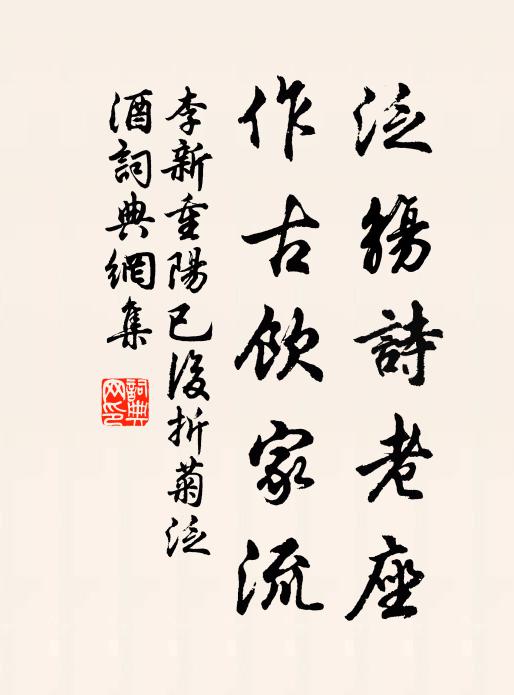 泛觴詩老座
作古飲家流
李新重陽已後折菊泛
酒詞典網集
詞典網印